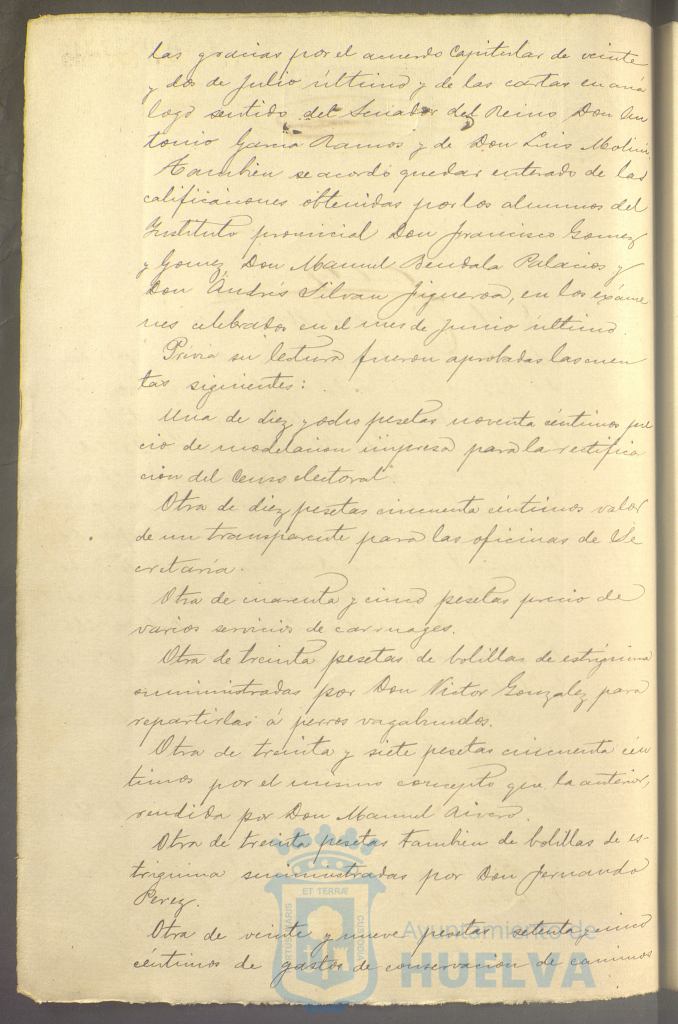 las gracias por el acuerdo Capitular de veinte
y dos de Julio último y de las cartas en aná
logo sentido del Senador del Reino Don An
tonio García Ramos y de Don Luis Molini.
Tambien se acordó quedar enterado de las
calificaciones obtenidas por los alumnos del
Instituto provincial Don Francisco Gomez
y Gomez, Don Manuel Bendala Palacios y
Don Andrés Silvan Figueroa, en los exáme
nes celebrados en el mes de Junio último.
Prévia su lectura fueron aprobadas las cuen
tas siguientes:
Una de diez y ocho pesetas noventa céntimos pre
cio de modelacion impresa para la rectifica
cion del Censo electoral.
Otra de diez pesetas cincuenta céntimos valor
de un transparente para las oficinas de Se
cretaría.
Otra de cuarenta y cinco pesetas precio de
varios servicios de carruages.
Otra de treinta pesetas de bolillas de estrignina
suministradas por Don Victor Gonzalez para
repartirlas á perros vagabundos.
Otra de treinta y siete pesetas cincuenta cén
timos por el mismo concepto que la anterior,
rendida por Don Manuel
Otra de treinta pesetas tambien de bolillas de es-
trignina suministradas por Don Fernando
Perez.
Otra de veinte y nueve pesetas setenta y cinco
céntimos de gastos de conservacion de caminos
PORTUS MARIS
ET TERRAE
CUSTODIA
Ayuntamiento de
HUELVA